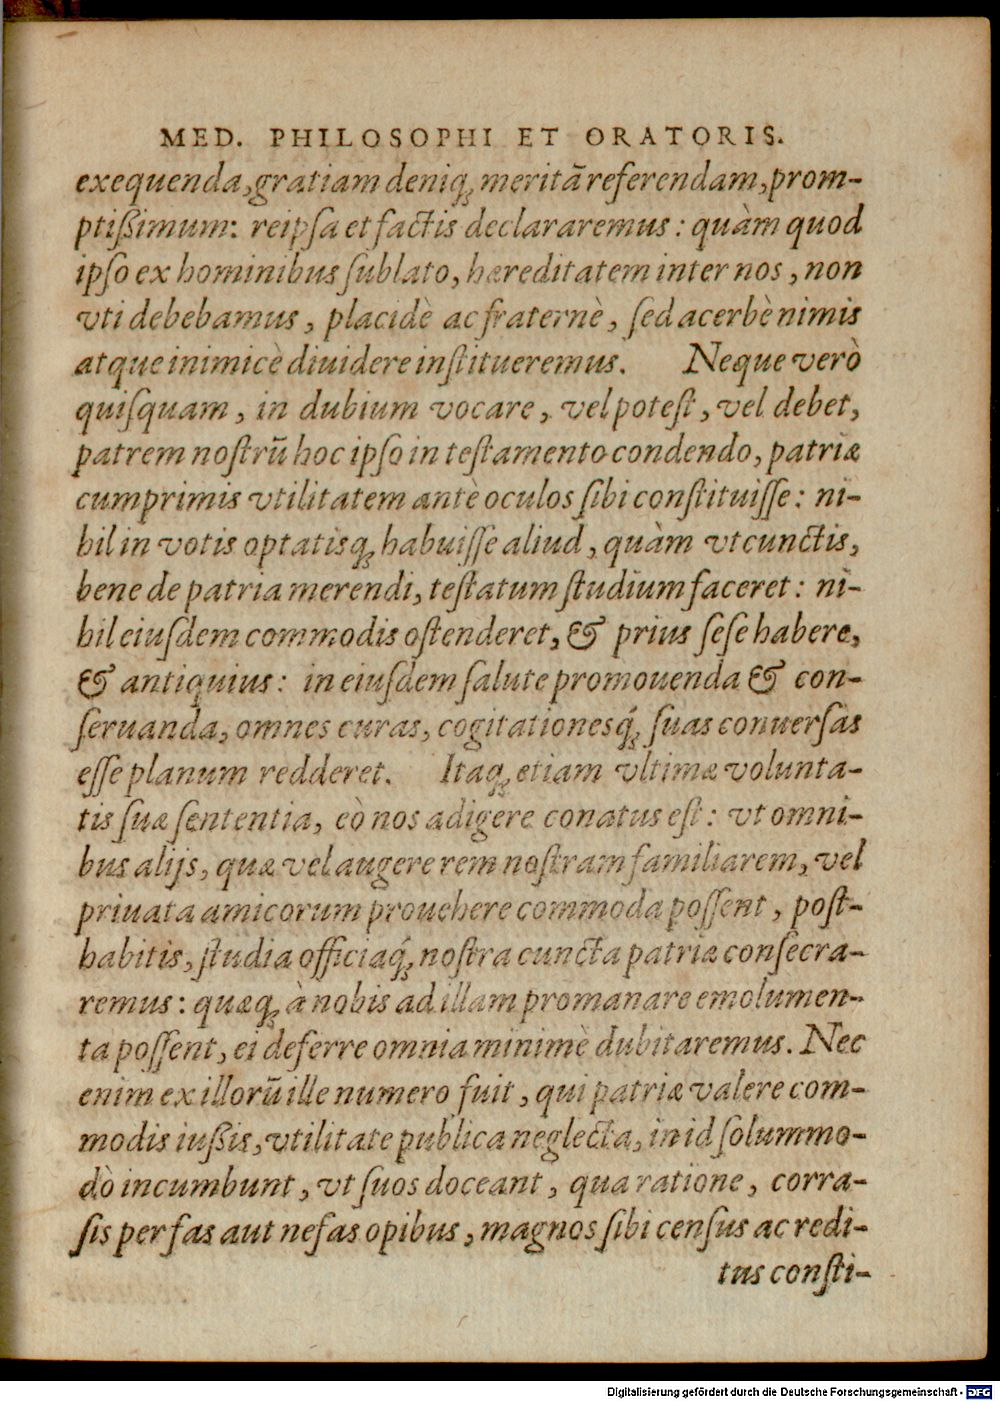 MED. PHILOSOPHI ET ORATORIS.
exequenda, gratiam deniqꝫ meritā referendam, prom-
ptißimum: reipſa et factis declararemus: quàm quod
ipſo ex hominibus ſublato, hæreditatem inter nos, non
vti debebamus, placidè ac fraternè, ſed acerbè nimis
atque inimicè diuidere inſtitueremus. Neque verò
quiſquam, in dubium vocare, vel poteſt, vel debet,
patrem noſtrū hoc ipſo in teſtamento condendo, patriæ
cumprimis vtilitatem antè oculos ſibi conſtituiſſe: ni-
hil in votis optatisqꝫ habuiſſe aliud, quàm vt cunctis,
bene de patria merendi, teſtatum ſtudium faceret: ni-
hil eiuſdem commodis oſtenderet, & prius ſeſe habere,
& antiquius: in eiuſdem ſalute promouenda & con-
ſeruanda, omnes curas, cogitationesqꝫ́ ſuas conuerſas
eſſe planum redderet. Itaqꝫ etiam vltimæ volunta-
tis ſuæ ſententia, eò nos adigere conatus eſt: vt omni-
bus alijs, quæ vel augere rem noſtram familiarem, vel
priuata amicorum prouehere commoda poſſent, poſt-
habitis, ſtudia officiaqꝫ́ noſtra cuncta patriæ conſecra-
remus: quæqꝫ à nobis ad illam promanare emolumen-
ta poſſent, ei deferre omnia minimè dubitaremus. Nec
enim ex illorū ille numero fuit, qui patriæ valere com-
modis iußis, vtilitate publica neglecta, in id ſolummo-
dò incumbunt, vt ſuos doceant, qua ratione, corra-
ſis per fas aut nefas opibus, magnos ſibi cenſus ac redi-
tus conſti-
Digitalisierung gefördert durch die Deutsche Forschungsgemeinschaft - DFG